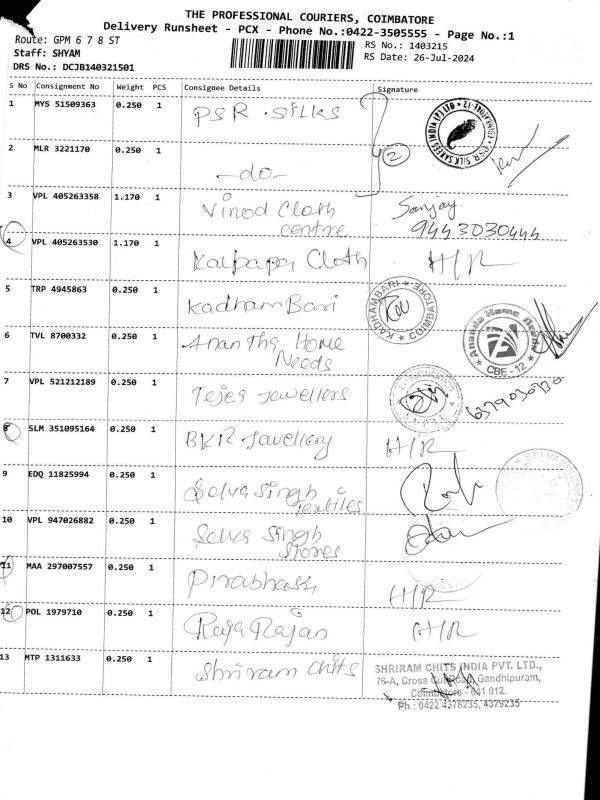 THE PROFESSIONAL COURIERS, COIMBATORE
Delivery Runsheet - PCX - Phone No.:0422-3505555 - Page No.:1
Route: GPM 6 7 8 ST
RS No.: 1403215
Staff: SHYAM
RS Date: 26-Jul-2024
DRS No.: DCJB140321501
S No Consignment No Weight PCS Consignee Details Signature
1 MYS 51509363 0.250 1 PSR . Silks
PSR SILK SAREES INDIA (P) LTD
2
2 MLR 3221170 0.250 1 -do-
3 VPL 405263358 1.170 1 Vinod Cloth centre Sanjay
9443030444
4 VPL 405263530 1.170 1 Kalpapa Cloth H/R
5 TRP 4945863 0.250 1 Kadham Bari
KADHAMBARI COIMBATORE
6 TVL 8700332 0.250 1 Anantha Home Needs
Ananda Home Needs CBE-12
7 VPL 521212189 0.250 1 Tejes Jewellers
8 SLM 351095164 0.250 1 BKR Jewellery H/R
9 EDQ 11825994 0.250 1 Selva Singh Textiles
10 VPL 947026882 0.250 1 Selva Singh Stores
11 MAA 297007557 0.250 1 H/R
12 POL 1979710 0.250 1 Raja Rajan H/R
13 MTP 1311633 0.250 1 Shriram chits
SHRIRAM CHITS INDIA PVT. LTD.,
76-A, Cross Cut Road, Gandhipuram,
Coimbatore - 641 012.
Ph : 0422 4378235, 4379235